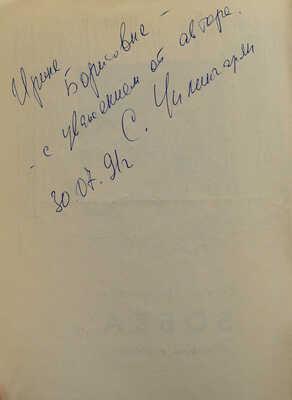 Ирине
Борисовне –
– с уважением от автора.
С. Чилингарян
30.07.91г